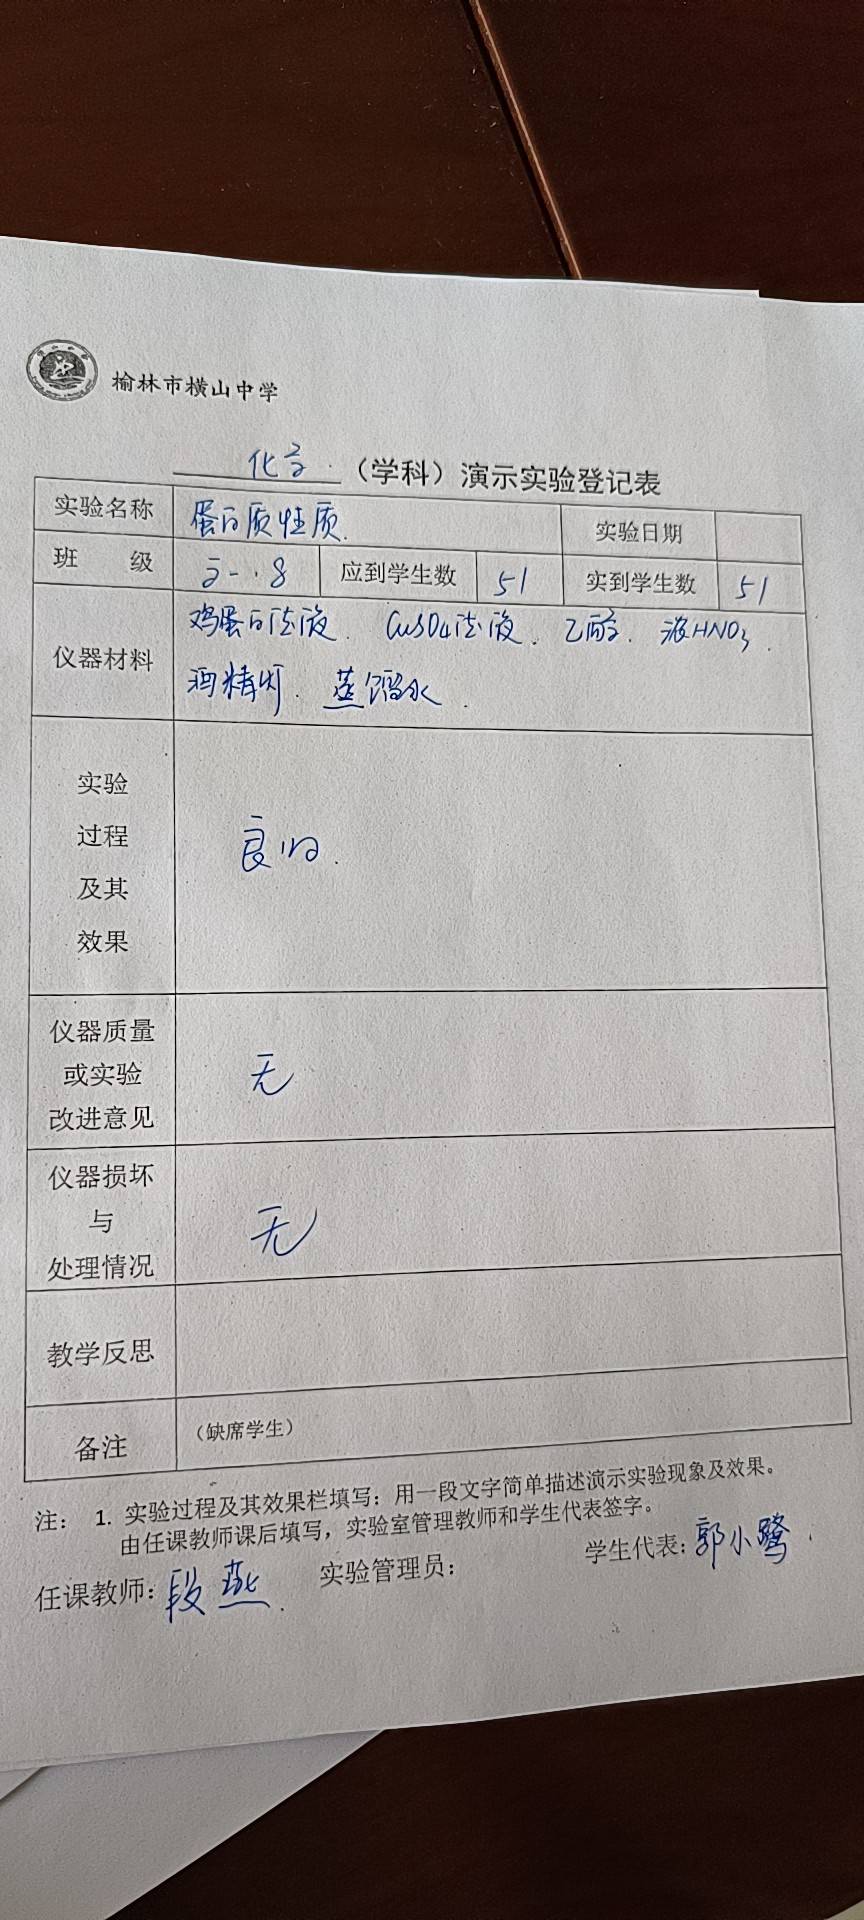 榆林市横山中学
化学（学科）演示实验登记表
实验名称 蛋白质性质. 实验日期
班 级 高一.8 应到学生数 51 实到学生数 51
仪器材料 鸡蛋白溶液. CuSO4溶液. 乙醇. 浓HNO3.
酒精灯. 蒸馏水.
实验
过程
及其
效果
良好.
仪器质量
或实验
改进意见
无
仪器损坏
与
处理情况
无
教学反思
备注 （缺席学生）
注： 1. 实验过程及其效果栏填写：用一段文字简单描述演示实验现象及效果。
由任课教师课后填写，实验室管理教师和学生代表签字。
任课教师：段燕. 实验管理员： 学生代表：郭小鹭.